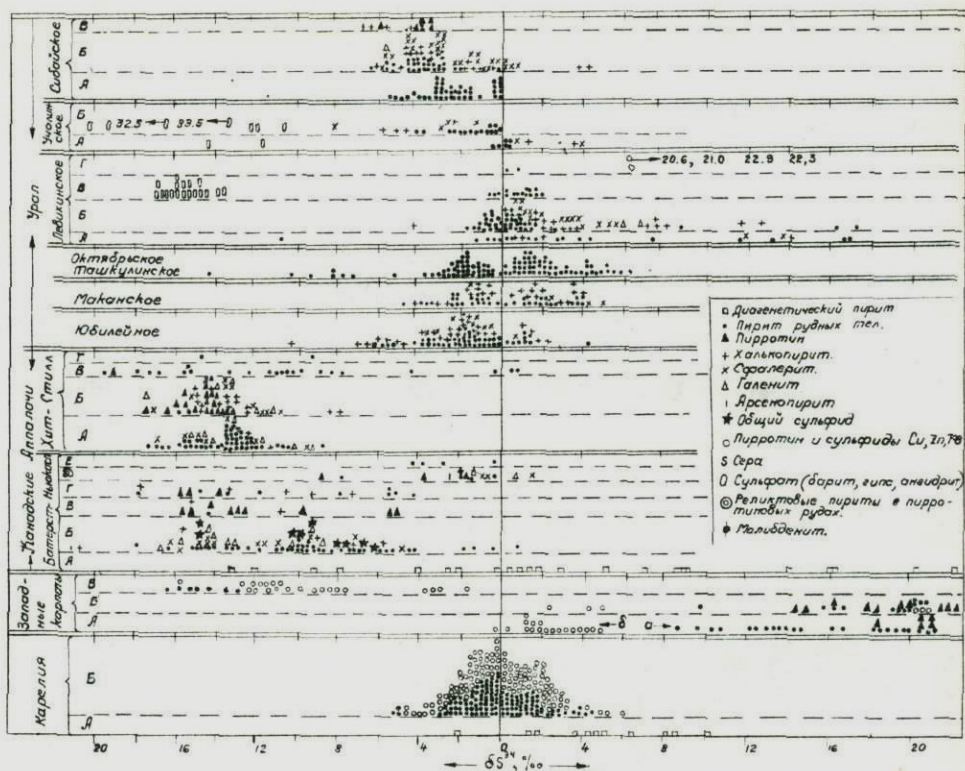 Урал
Сибайское
В
Б
А
Учалинское
Б
А
32.5
33.5
Левихинское
Г
В
Б
А
20.6, 21.0 22.9 22,3
Октябрьское
Ташкулинское
Маканское
Юбилейное
Канадские Аппалачи
Хит-Стилл
Г
В
Б
А
Батерст-Ньюкасл
Г
В
Б
А
Западные Карпаты
В
Б
А
б а
Карелия
Б
А
□ Диагенетический пирит
• Пирит рудных тел.
▲ Пирротин
+ Халькопирит.
× Сфалерит.
△ Галенит
ı Арсенопирит
★ Общий сульфид
○ Пирротин и сульфиды Cu, Zn, Pb
S Сера
0 Сульфат (барит, гипс, ангидрит)
◎ Реликтовые пириты в пирротиновых рудах.
Молибденит.
20 16 12 8 4 0 4 8 12 16 20
δS³⁴, ‰